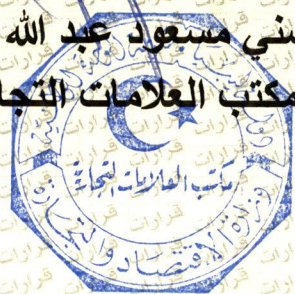 سني مسعود عبد الله
مكتب العلامات التجا
مكتب العلامات التجارية
وزارة الاقتصاد والتجارة
قرارات